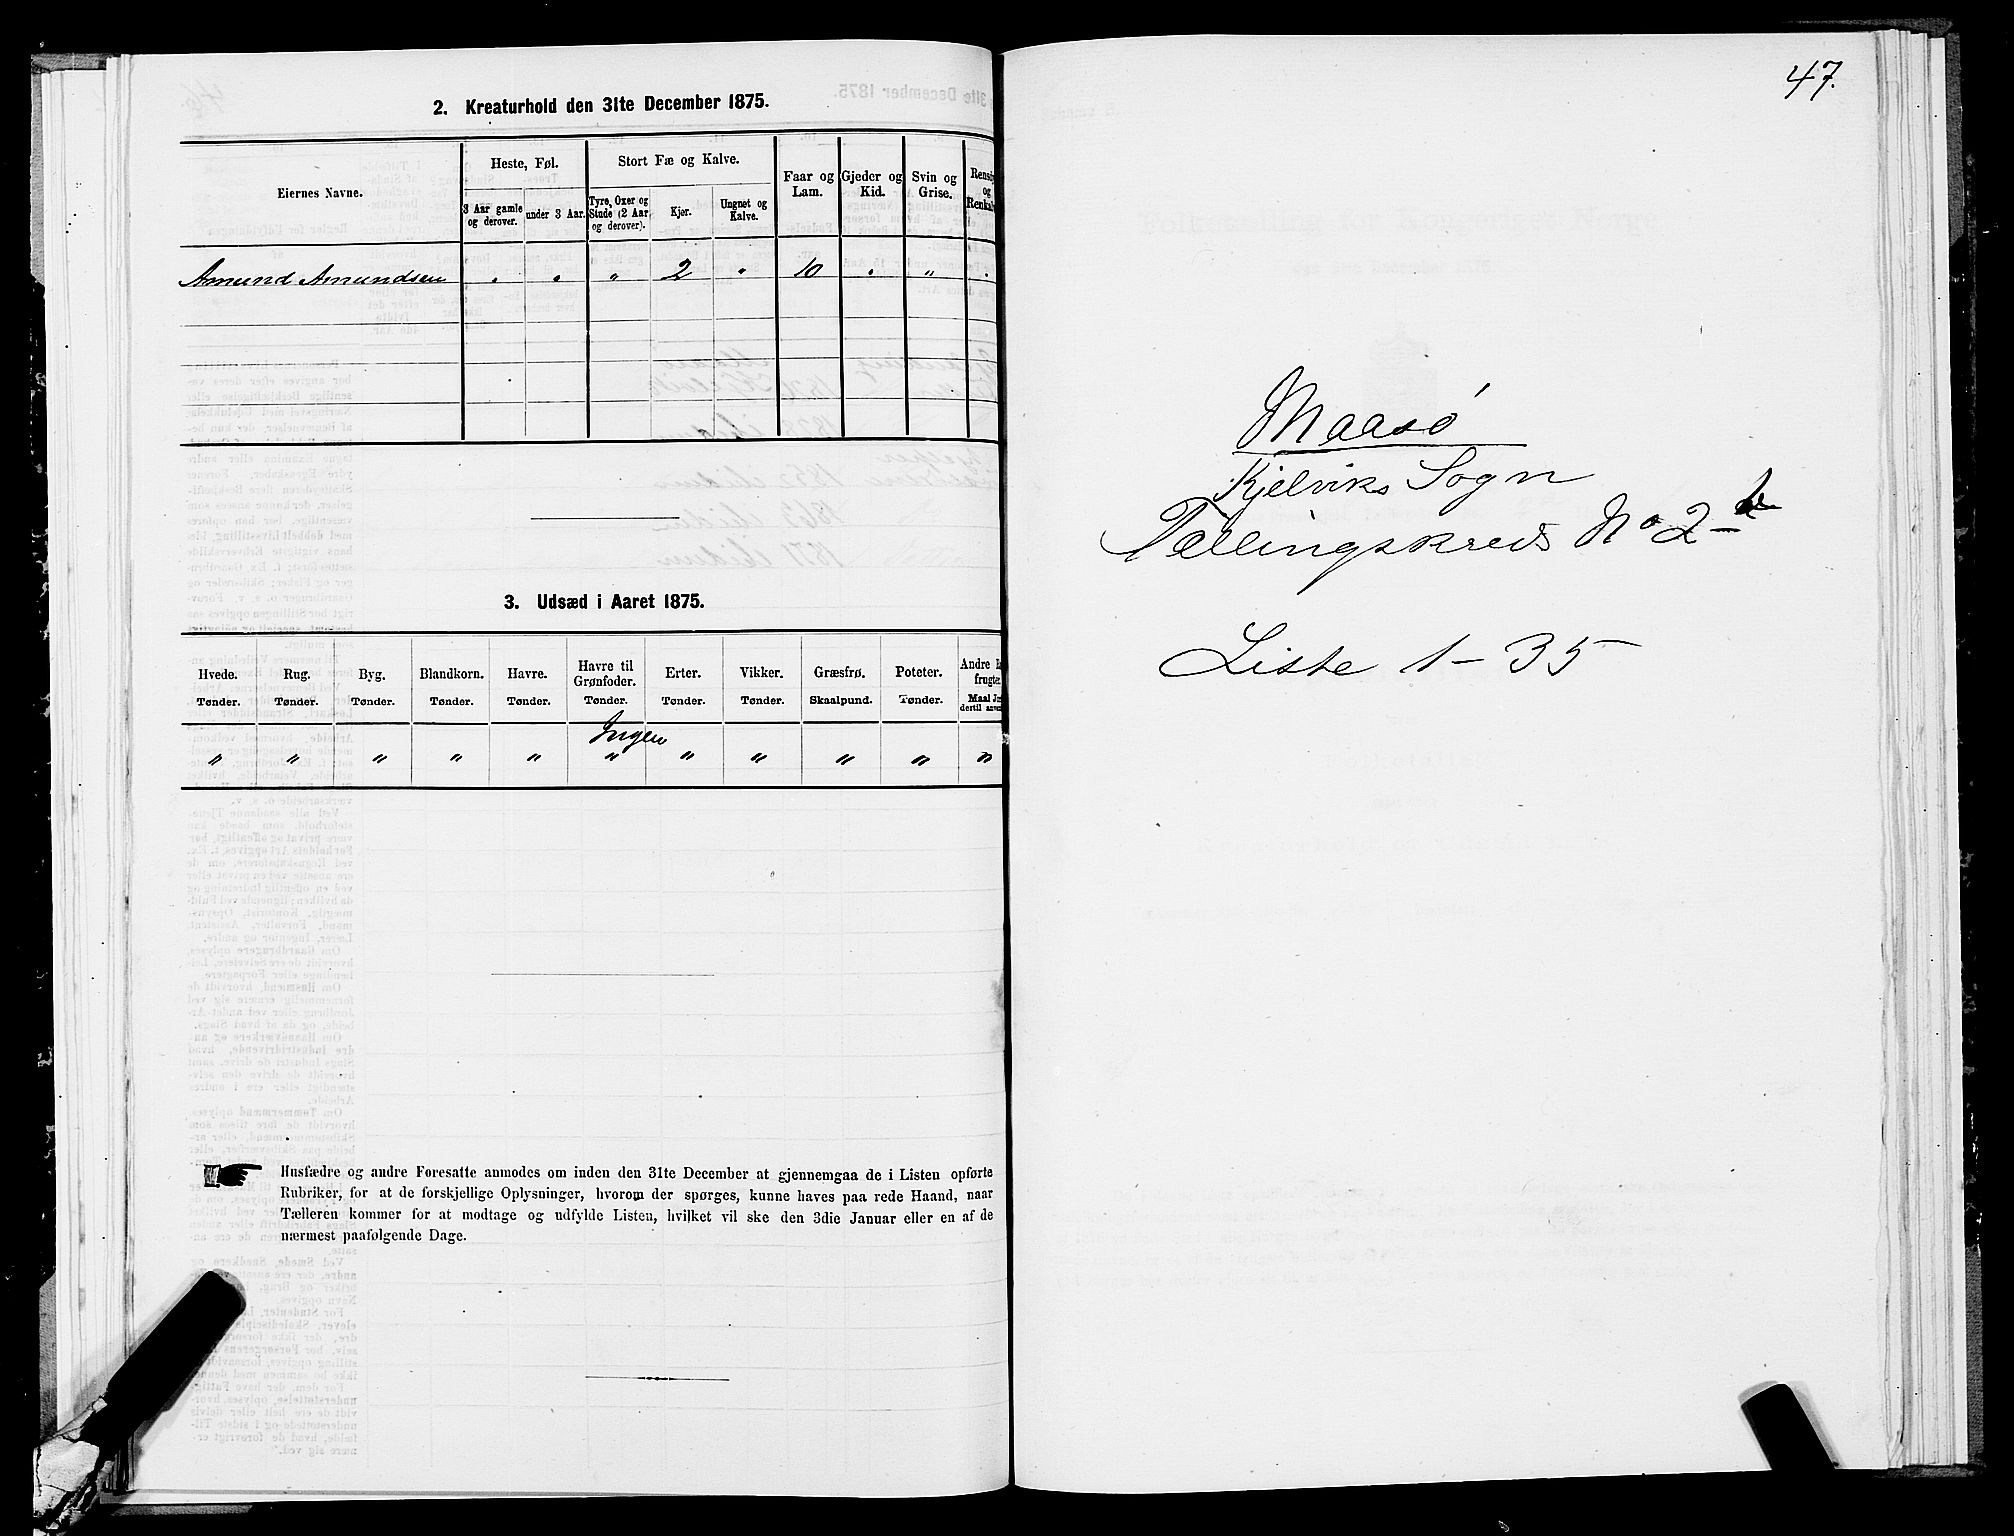 2. Kreaturhold den 31te December 1875.
Eiernes Navne.
Heste, Føl.
3 Aar gamle og derover.
under 3 Aar.
Stort Fæ og Kalve.
Tyre, Oxer og Stude (2 Aar og derover).
Kjør.
Ungnøt og Kalve.
Faar og Lam.
Gjeder og Kid.
Svin og Grise.
Rensdy
og
Renkalv
Amund Amundsen " " " 2 " 10 " " "
3. Udsæd i Aaret 1875.
Hvede. Rug. Byg. Blandkorn. Havre. Havre til Grønfoder. Erter. Vikker. Græsfrø. Poteter. Andre
frugte
Tønder. Tønder. Tønder. Tønder. Tønder. Tønder. Tønder. Tønder. Skaalpund. Tønder. Maal
dertil
Ingen
" " " " " " " " " " "
Husfædre og andre Foresatte anmodes om inden den 31te December at gjennemgaa de i Listen opførte
Rubriker, for at de forskjellige Oplysninger, hvorom der spørges, kunne haves paa rede Haand, naar
Tælleren kommer for at modtage og udfylde Listen, hvilket vil ske den 3die Januar eller en af de
nærmest paafølgende Dage.
47.
Maasø
Kjelviks Sogn
Tællingskreds No 2
Liste 1-35